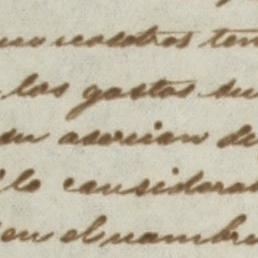 nosotros ten
los gastos su
su asercion de
lo considera
en el nombr